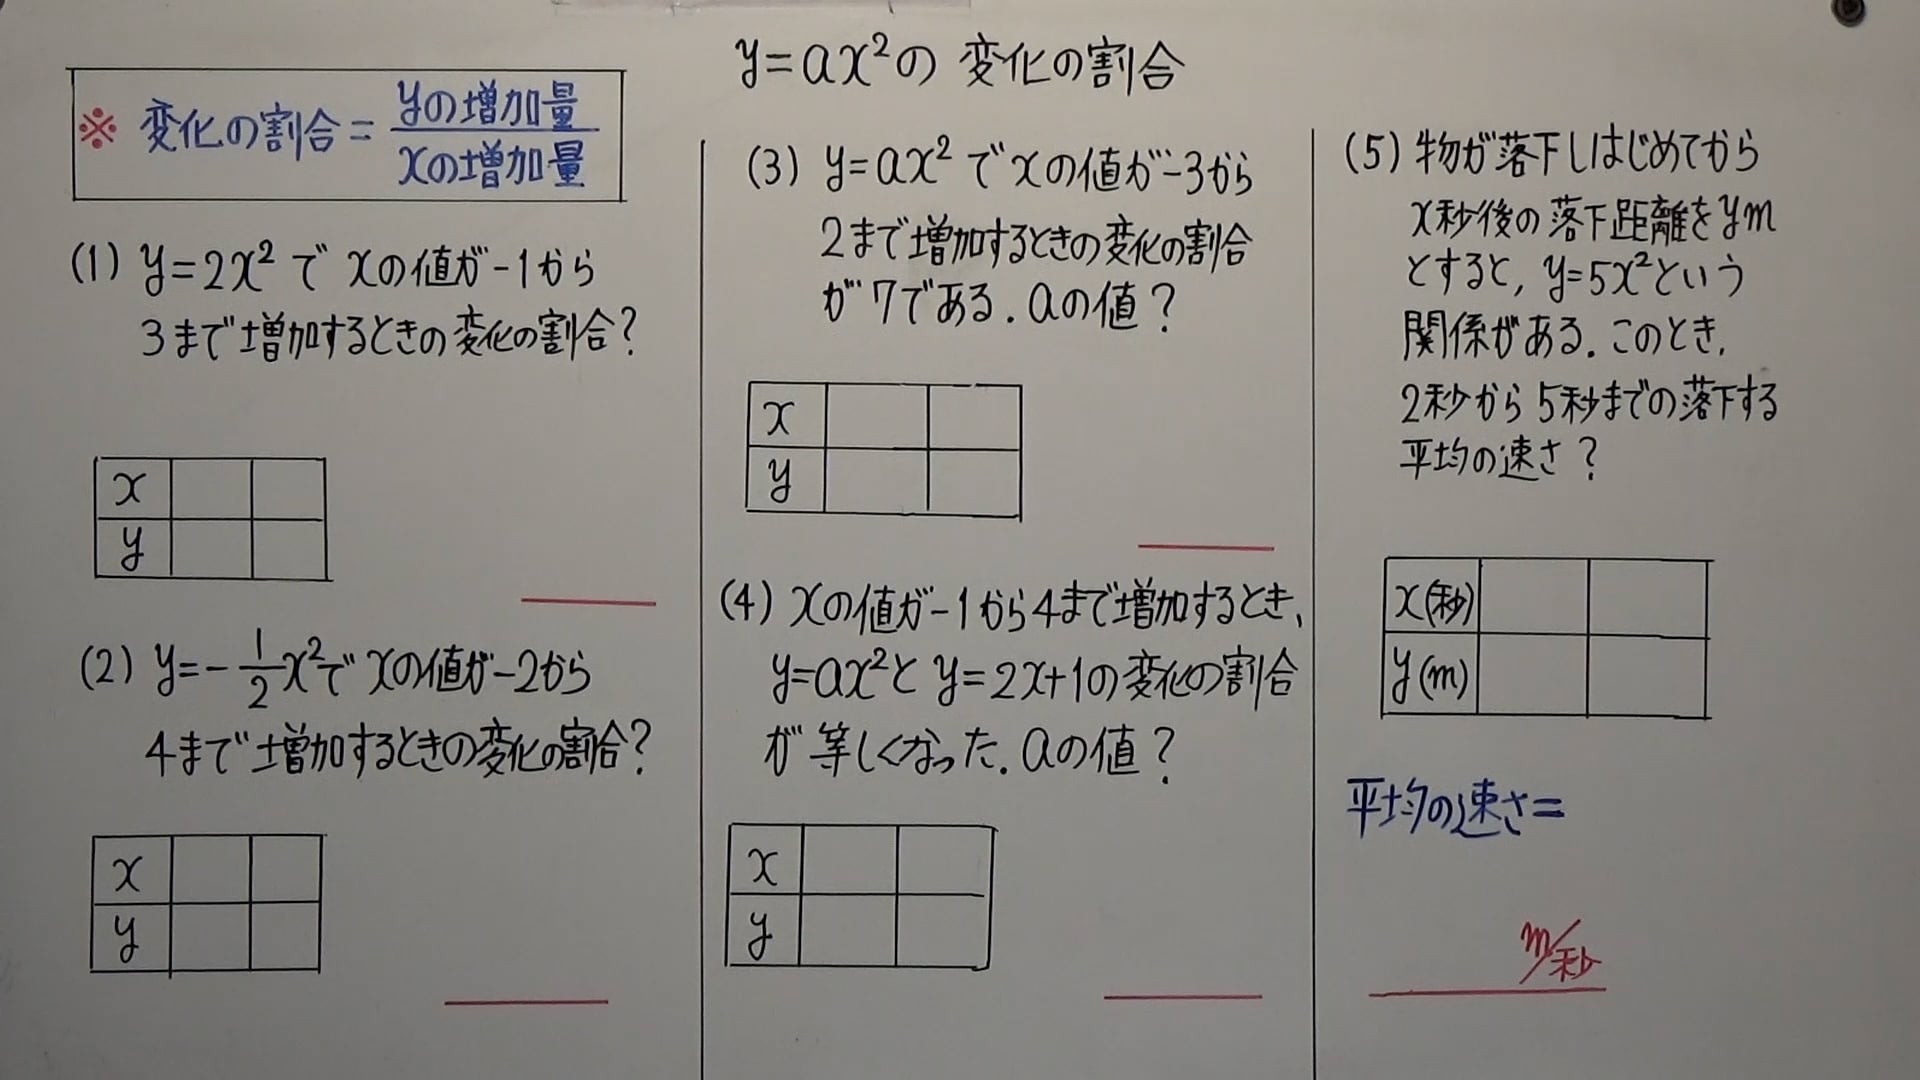 y=ax²の 変化の割合
※ 変化の割合 = yの増加量/xの増加量
(1) y=2x² で xの値が-1から
3まで増加するときの変化の割合?
x
y
(2) y=-1/2x²で xの値が-2から
4まで増加するときの変化の割合?
x
y
(3) y=ax² で xの値が-3から
2まで増加するときの変化の割合
が7である. aの値?
x
y
(4) xの値が-1から4まで増加するとき,
y=ax²と y=2x+1の変化の割合
が等しくなった. aの値?
x
y
(5) 物が落下しはじめてから
x秒後の落下距離をym
とすると, y=5x²という
関係がある. このとき,
2秒から5秒までの落下する
平均の速さ?
x(秒)
y(m)
平均の速さ=
m/秒